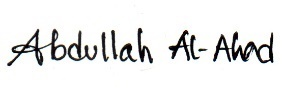 Abdullah Al-Ahad